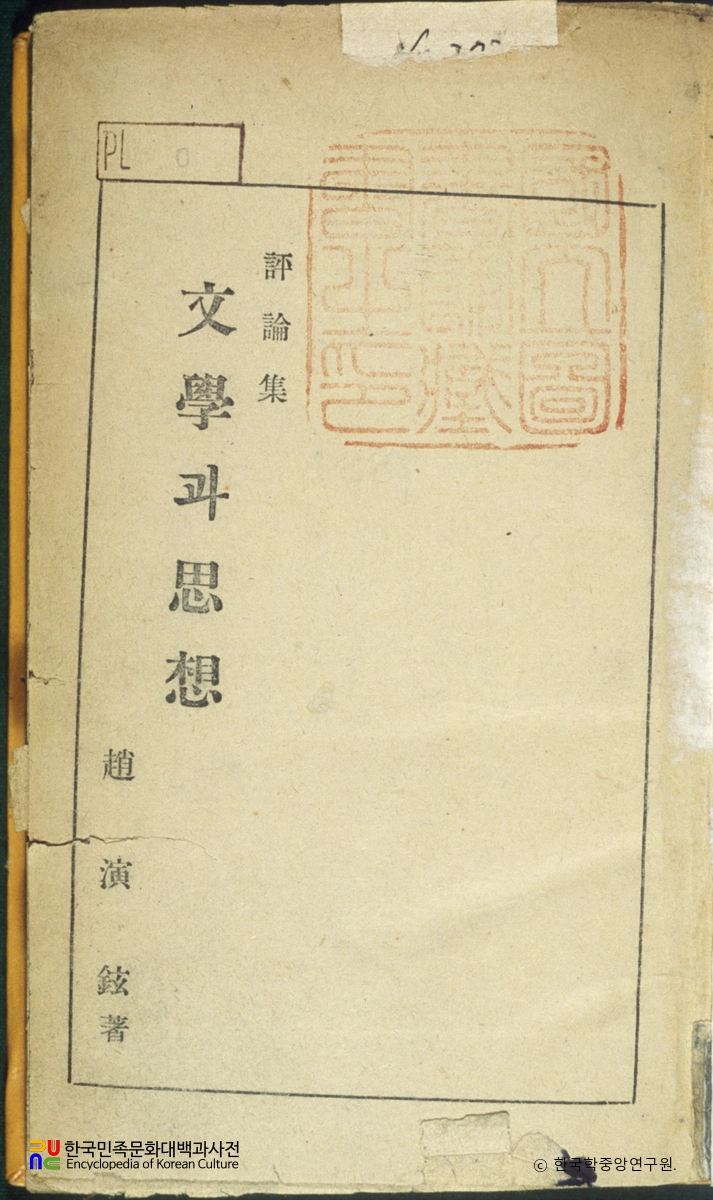 PL 0
評論集
文學과思想
趙演鉉著
한국민족문화대백과사전
Encyclopedia of Korean Culture
ⓒ 한국학중앙연구원.